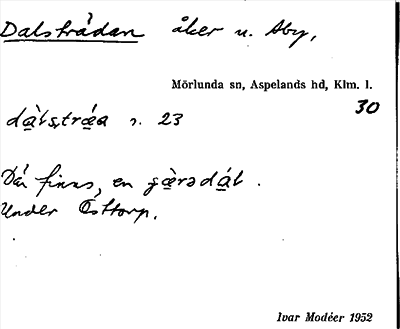 Dalstrådan åker u. Åby,
Mörlunda sn, Aspelands hd, Klm. l.
30
dàlstrá̰a s. 23
Där finns, en gæ̀rədál.
Under Östtorp.
Ivar Modéer 1952